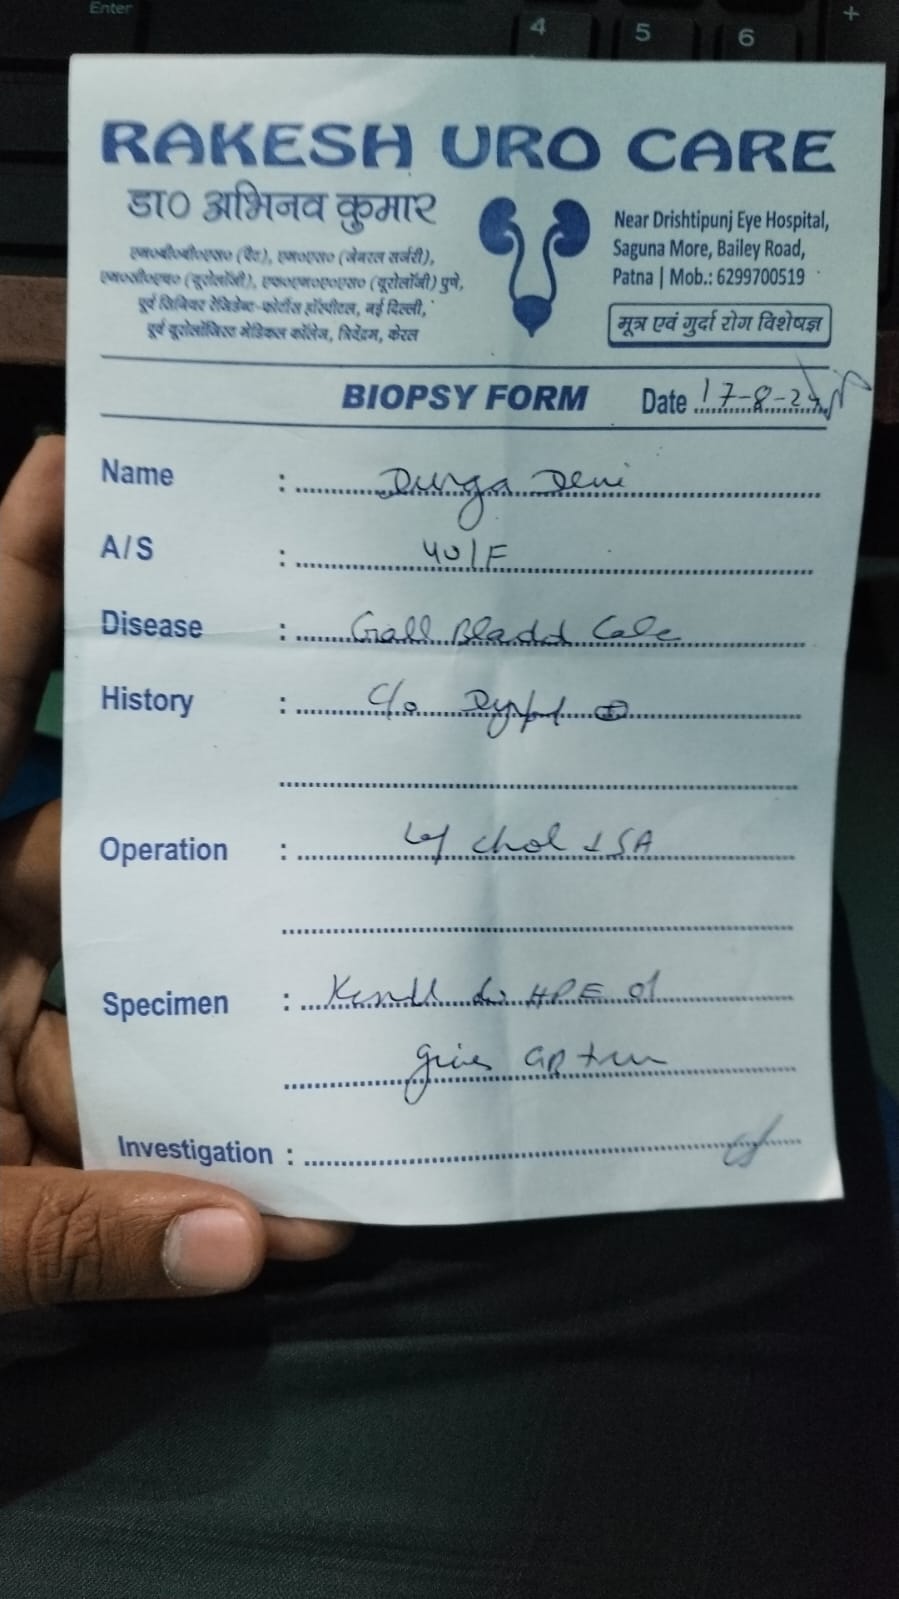 Enter
4 5 6 +
RAKESH URO CARE
डा० अभिनव कुमार
एम०बी०बी०एस० (पैट), एम०एस० (जेनरल सर्जरी),
एम०सी०एच० (यूरोलॉजी), एफ०एम०ए०एस० (यूरोलॉजी) पुणे,
पूर्व सिनियर रेजिडेन्ट-फोर्टीस हॉस्पीटल, नई दिल्ली,
पूर्व यूरोलॉजिस्ट मेडिकल कॉलेज, त्रिवेंद्रम, केरल
Near Drishtipunj Eye Hospital,
Saguna More, Bailey Road,
Patna | Mob.: 6299700519
मूत्र एवं गुर्दा रोग विशेषज्ञ
BIOPSY FORM Date 17-8-
Name : Durga Devi
A/S : 40/F
Disease : Gall Bladd Calc
History : C/o
Operation : chol SA
Specimen : HPE of
given GB
Investigation :